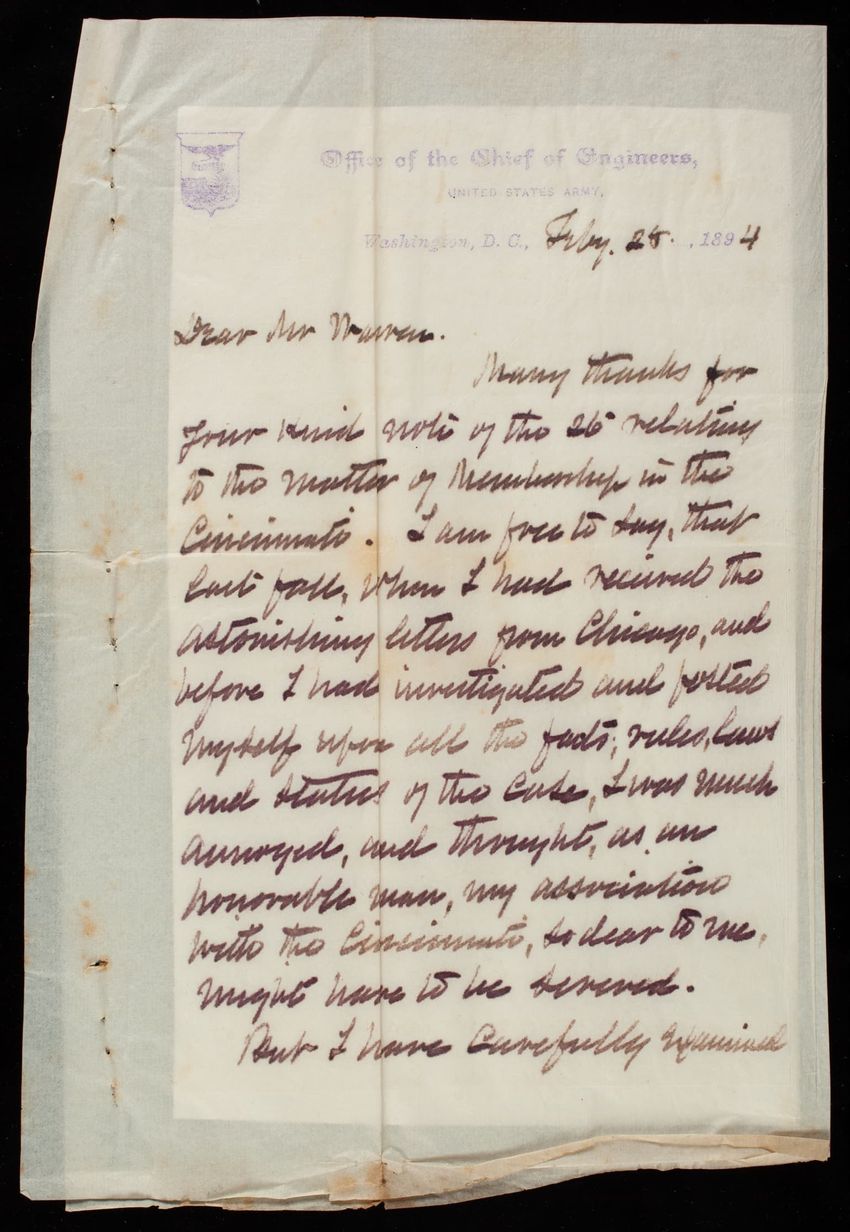 Office of the Chief of Engineers,
UNITED STATES ARMY,
Washington, D. C., Feby. 28. , 1894
Dear Mr Warren.
Many thanks for
your kind note of the 26 relating
to the matter of Membership in the
Cincinnati. I am free to say, that
last fall, when I had received the
astonishing letters from Chicago, and
before I had investigated and posted
myself upon all the facts, rules, laws
and status of the case, I was much
annoyed, and thought, as an
honorable man, my association
with the Cincinnati, so dear to me,
might have to be severed.
But I have carefully examined